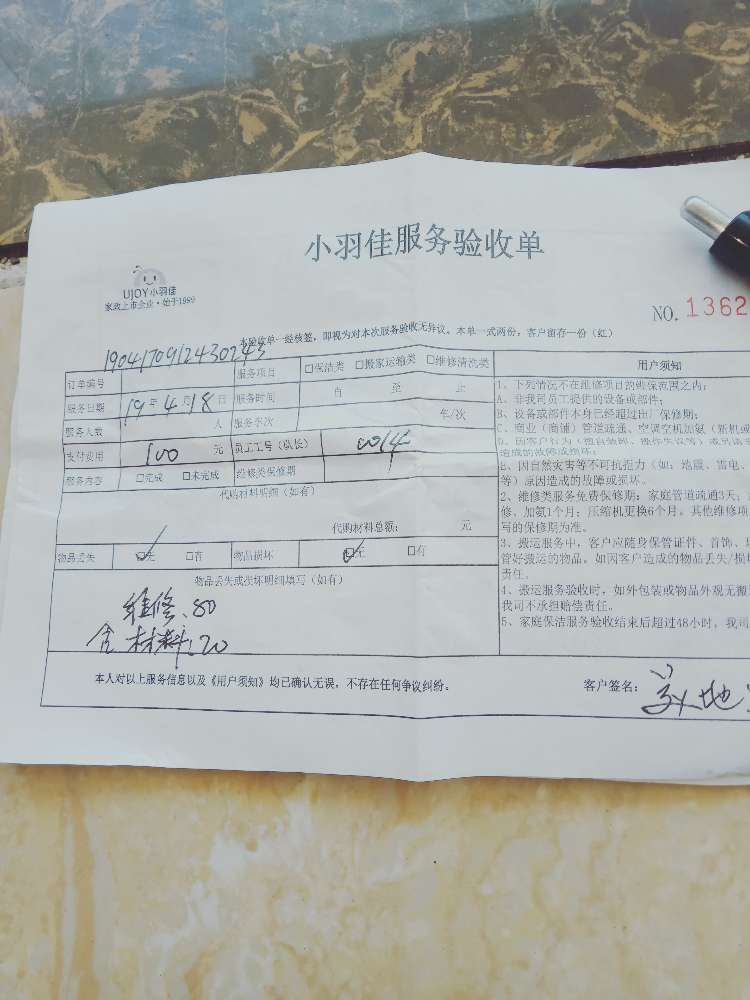 小羽佳服务验收单
UJOY小羽佳
家政上市企业·始于1999
NO. 1362
本验收单一经核签，即视为对本次服务验收无异议。本单一式两份，客户留存一份（红）
订单编号 1904170912430243 服务项目 □保洁类 □搬家运输类 □维修清洗类
服务日期 19年4月18日 服务时间 自 至 止
服务人数 人 服务车次 车/次
支付费用 100 元 员工工号（队长） 0014
服务内容 □完成 □未完成 维修类保修期
代购材料明细（如有）
代购材料总额： 元
物品丢失 □无 □有 物品损坏 □无 □有
物品丢失或损坏明细填写（如有）
维修.80
含材料.20
用户须知
1、下列情况不在维修项目的维保范围之内：
A、非我司员工提供的设备或部件；
B、设备或部件本身已经超过出厂保修期；
C、商业（商铺）管道疏通、空调空机加氨（新机或
造成的故障或损坏。
E、因自然灾害等不可抗拒力（如：地震、雷电、
等）原因造成的故障或损坏。
2、维修类服务免费保修期：家庭管道疏通3天；
修、加氨1个月；压缩机更换6个月。其他维修项
写的保修期为准。
3、搬运服务中，客户应随身保管证件、首饰、
管好搬运的物品。如因客户造成的物品丢失/损
责任。
4、搬运服务验收时，如外包装或物品外观无
我司不承担赔偿责任。
5、家庭保洁服务验收结束后超过48小时，我司
本人对以上服务信息以及《用户须知》均已确认无误，不存在任何争议纠纷。
客户签名：